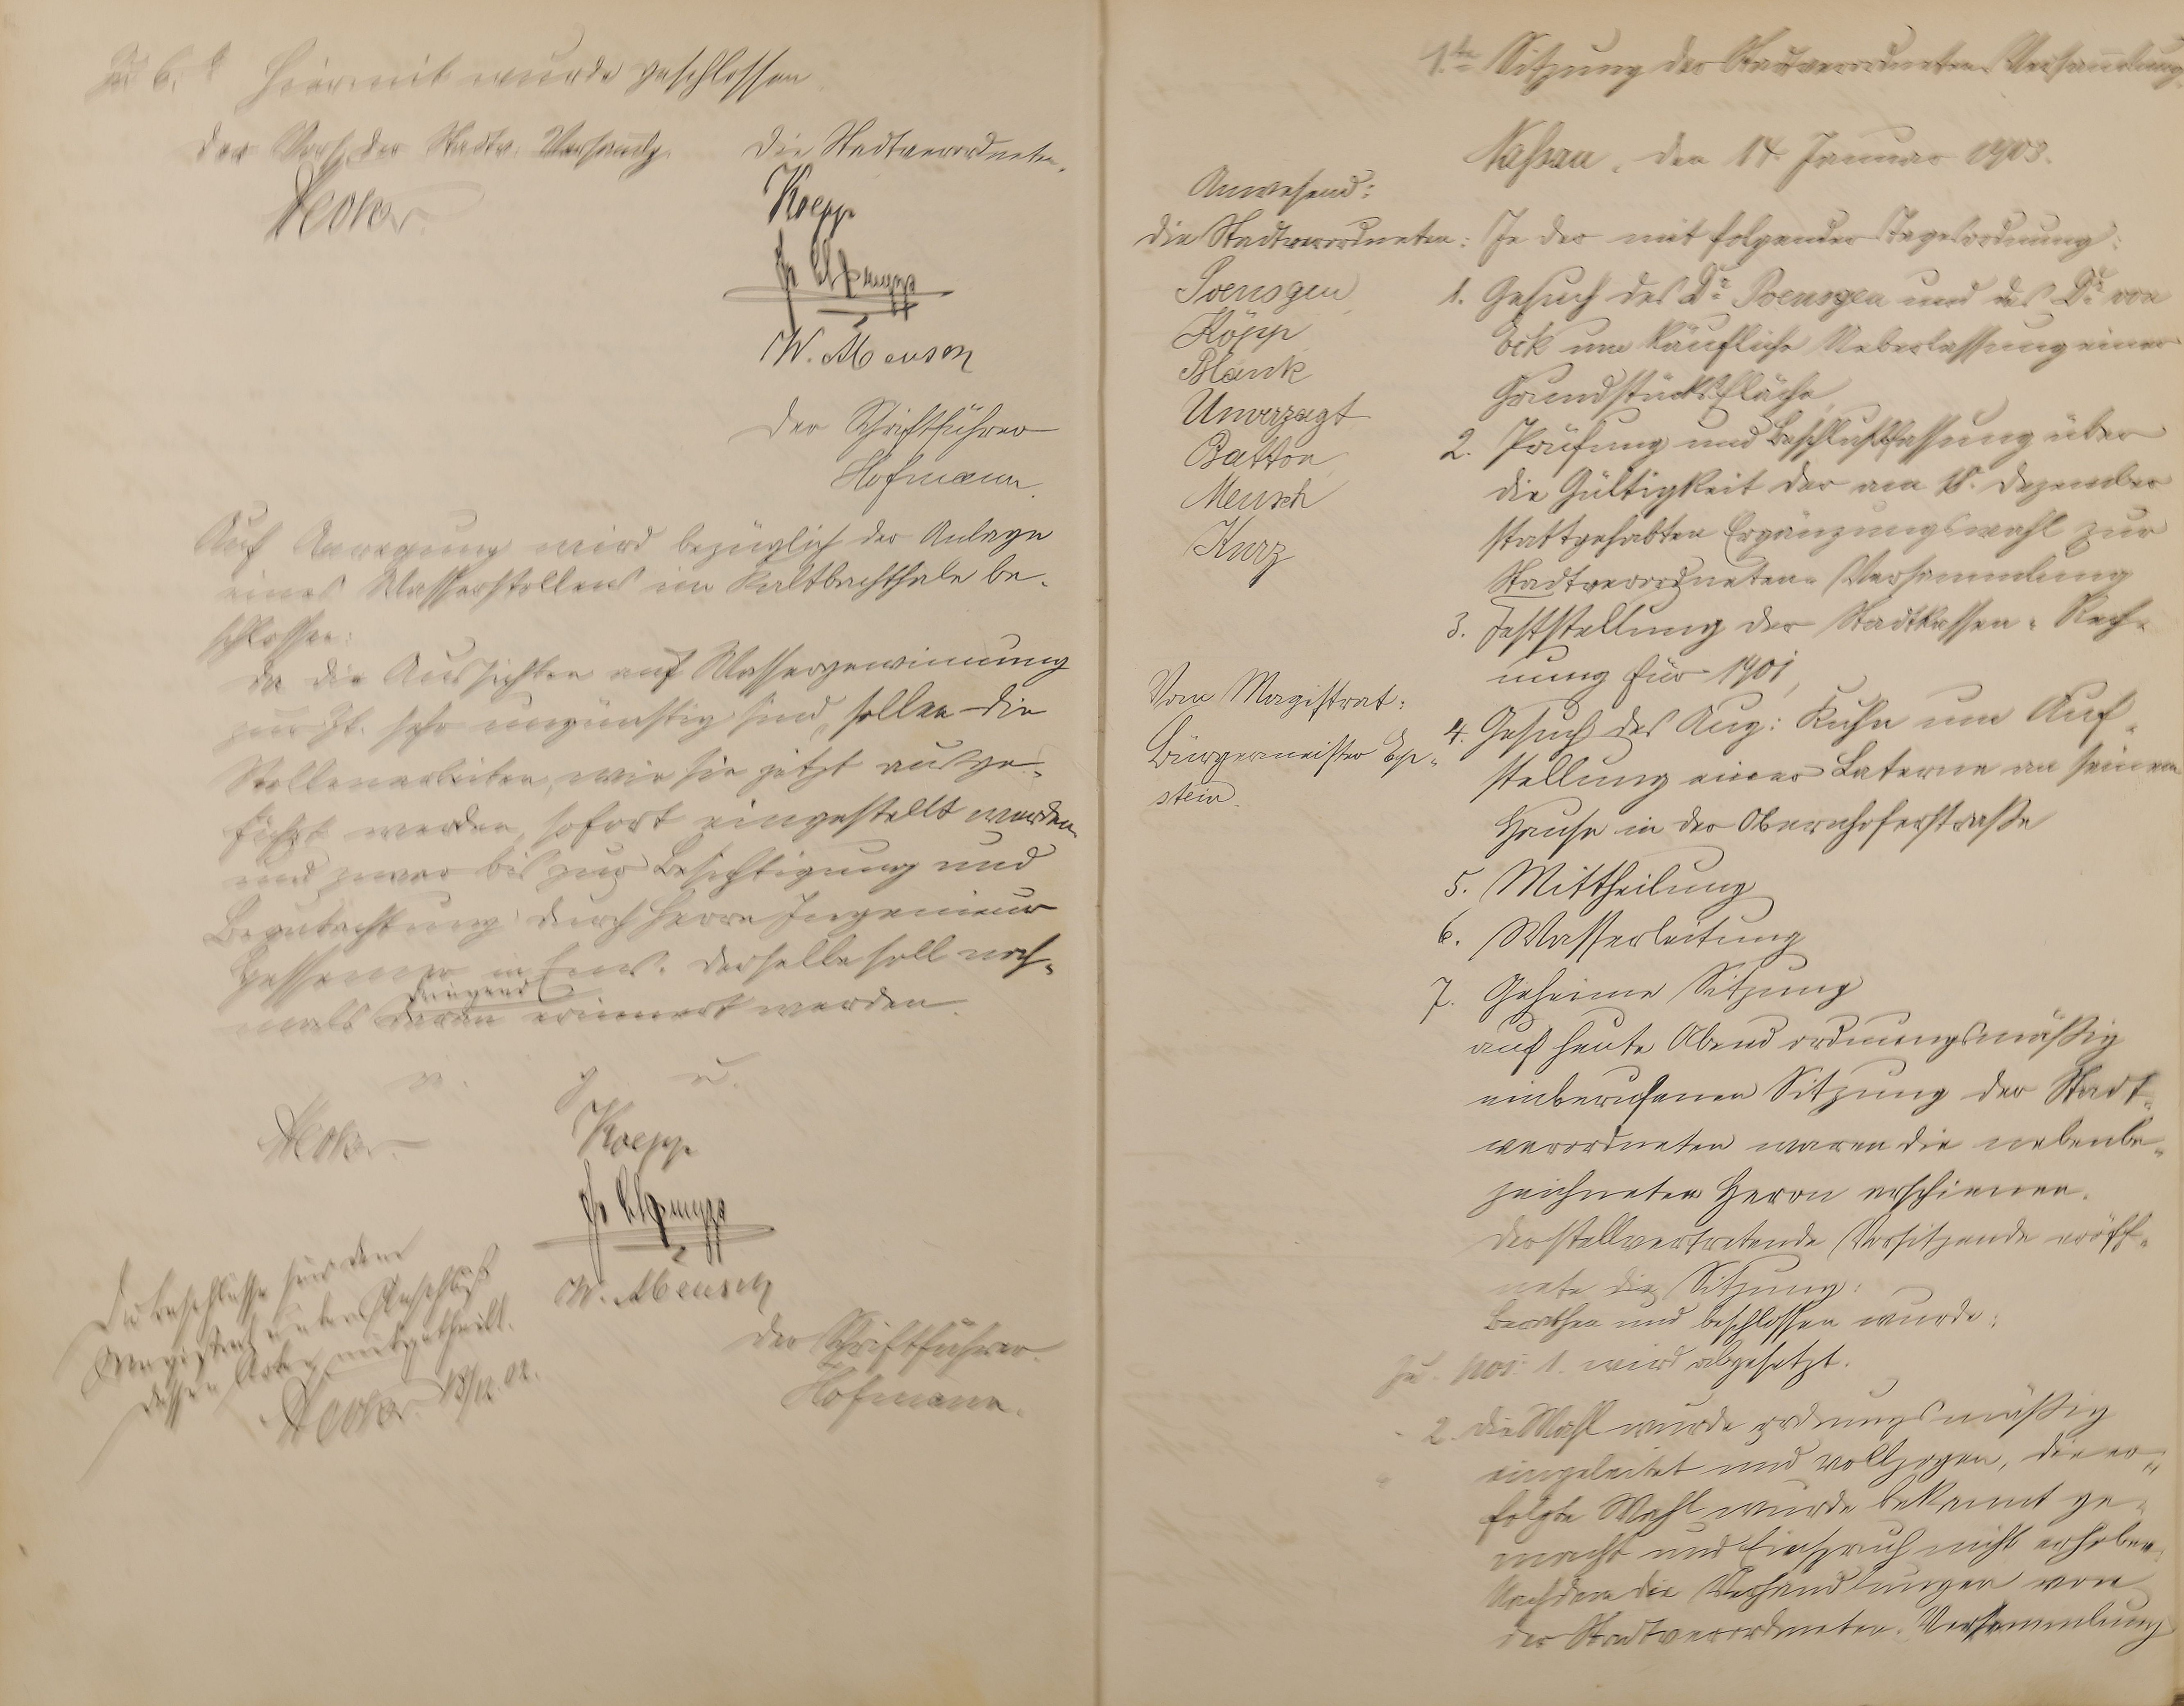 Zu 6. Hiermit wurde geschlossen
Der Vors. der Stadtv. Versamlg. Die Stadtverordneten.
Koepp
W. Mensch
Der Schriftführer
Hofmann.
Auf Anregung wird bezüglich der Anlage
eines Wasserstollens im Kaltbachthale be-
schlossen:
Da die Aussichten auf Wassergewinnung
zur Zt. sehr ungünstig sind, sollen die
Stollenarbeiten, wie sie jetzt ausge-
führt werden, sofort eingestellt werden
und zwar bis zur Besichtigung und
Begutachtung durch Herrn Ingenieur
in Ems. Derselbe soll noch-
dringend
mals daran erinnert werden.
v. g. u.
Koepp
W. Mensch
Die Beschlüsse sind dem
Magistrat unter Anschluß
dessen Akten mitgetheilt.
18/12. 02.
Der Schriftführer.
Hofmann.
1.te Sitzung der Stadtverordneten Versammlung.
Nassau, den 14. Januar 1903.
Anwesend:
Die Stadtverordneten:
Poensgen
Köpp
Blank
Unverzagt
Batton
Mensch
Kurz
Vom Magistrat:
Bürgermeister Ep-
stein.
In der mit folgender Tagesordnung:
1. Gesuch des Dr. Poensgen und des Dr. von
Eck um käufliche Ueberlassung einer
Grundstücksfläche,
2. Prüfung und Beschlußfassung über
die Gültigkeit der am 18. Dezember
stattgehabten Ergänzungswahl zur
Stadtverordneten-Versammlung
3. Feststellung der Stadtkassen-Rech-
nung für 1901,
4. Gesuch des Aug: Kuhn um Auf-
stellung einer Laterne an seinem
Hause in der Obernhoferstraße
5. Mittheilung
6. Wasserleitung
7. Geheime Sitzung
auf heute Abend ordnungsmäßig
einberufenen Sitzung der Stadt-
verordneten waren die nebenbe-
zeichneten Herrn erschienen.
Der stellvertretende Vorsitzende eröff-
nete die Sitzung:
Berathen und beschlossen wurde:
Zu pos: 1. wird abgesetzt.
2. Die Wahl wurde ordnungsmäßig
eingeleitet und vollzogen, die er-
folgte Wahl wurde bekannt ge-
macht und Einspruch nicht erhoben.
Nachdem die Verhandlungen von
der Stadtverordneten-Versammlung